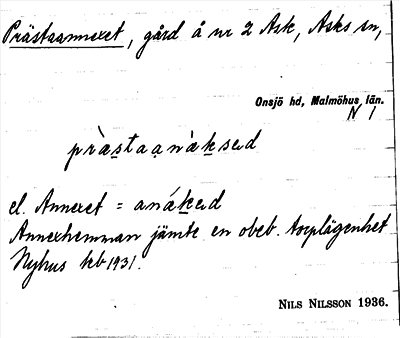 Prästaannexet, gård å nr 2 Ask, Asks sn,
Onsjö hd, Malmöhus län.
N 1
pràstaanàksəd
el. Annexet = anákəd
Annexhemman jämte en obeb. torplägenhet
Nyhus kb 1931.
NILS NILSSON 1936.